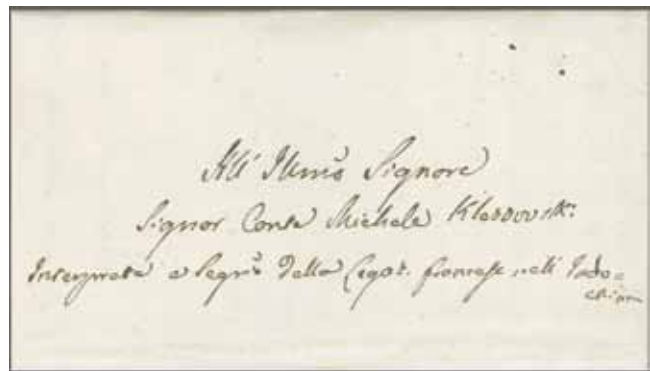 All' Illmo Signore
Signor Conte Michele Kleszovsk:
Interprete e Segrio della Legat. francese nell' Indo=
china